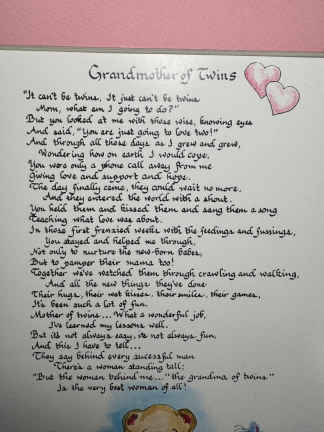 Grandmother of Twins
"It can't be twins, It just can't be twins
Mom, what am I going to do?"
But you looked at me with those wise, knowing eyes
And said, "You are just going to love two!"
And through all those days as I grew and grew,
Wondering how on earth I would cope,
You were only a phone call away from me
Giving love and support and hope.
The day finally came, they could wait no more.
And they entered the world with a shout.
You held them and kissed them and sang them a song
Teaching what love was about.
In those first frenzied weeks with the feedings and fussings,
You stayed and helped me through,
Not only to nurture the new-born babes,
But to pamper their mama too!
Together we've watched them through crawling and walking,
And all the new things they've done
Their hugs, their wet kisses, their smiles, their games,
It's been such a lot of fun.
Mother of twins... What a wonderful job,
I've learned my lessons well.
But it's not always easy, it's not always fun,
And this I have to tell...
They say behind every sucessful man
There's a woman standing tall;
"But the woman behind me..." the grandma of twins"
Is the very best woman of all!